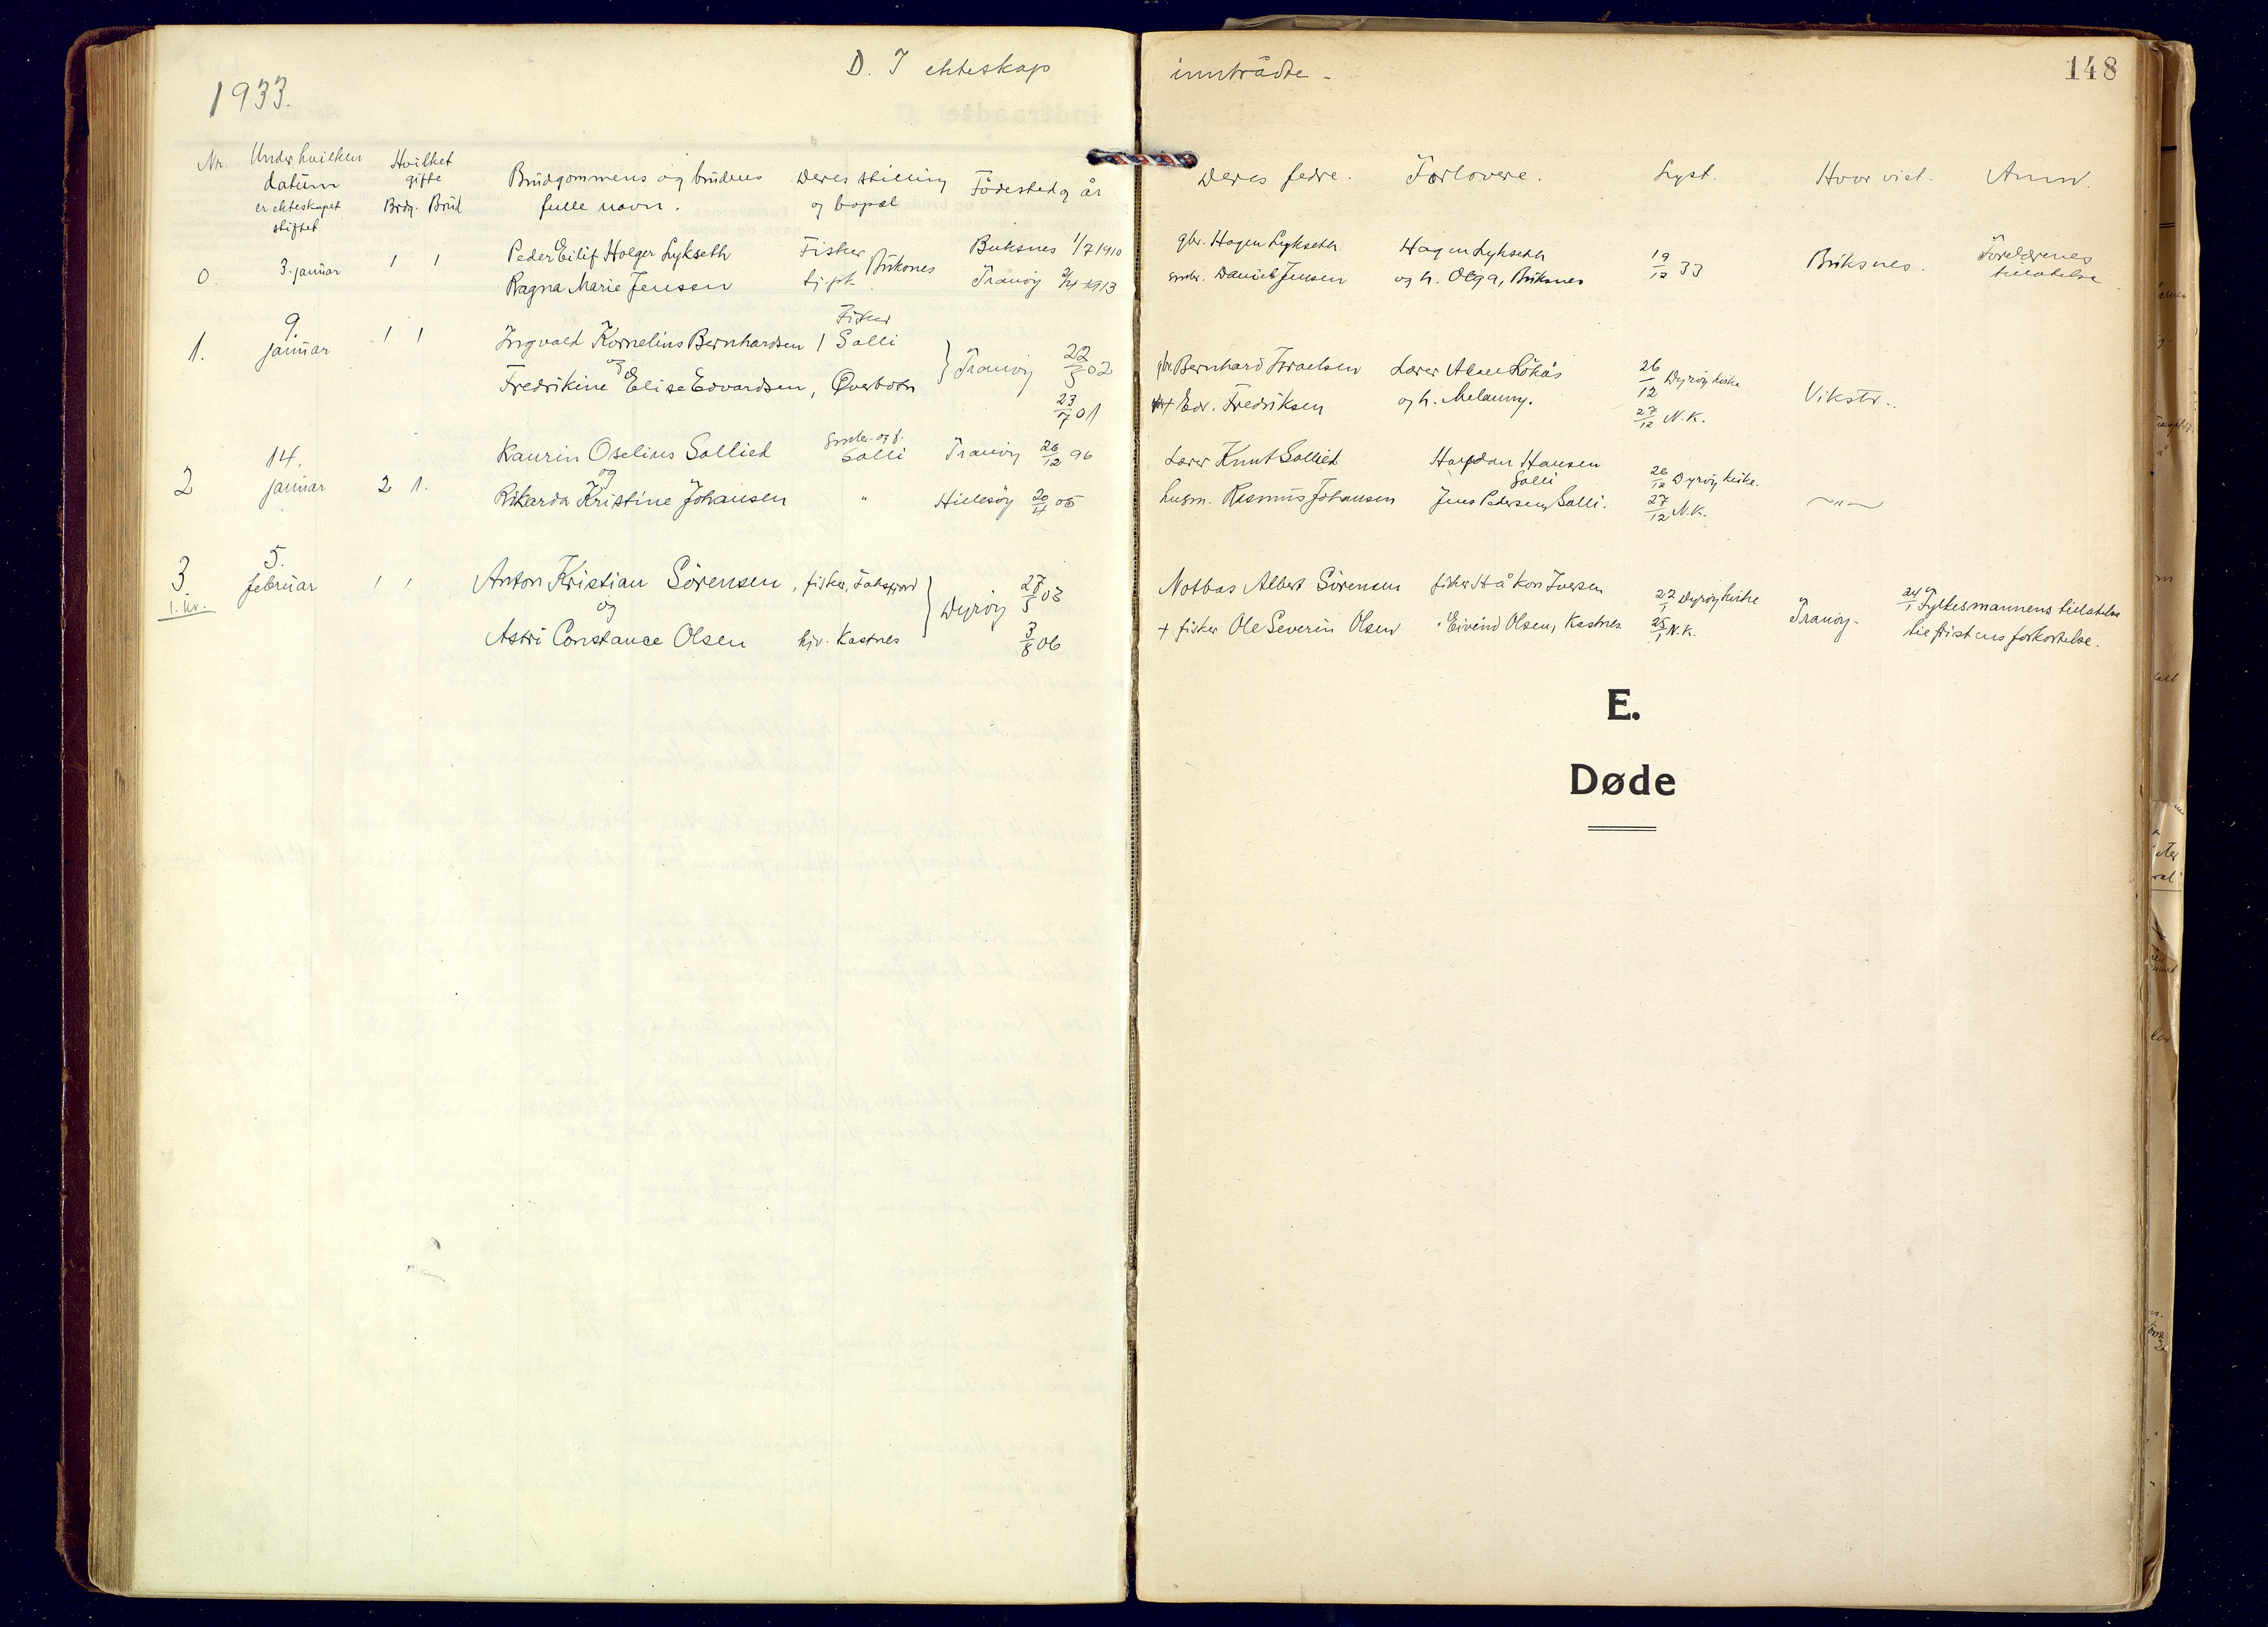 1933.
D. I ekteskap
Nr.
Under hvilken datum er ekteskapet stiftet
Hvilket gifte
Brdg. Brud
Brudgommens og brudens fulle navn.
Deres stilling og bopæl
Födested og år
0. 3. januar 1 1 Peder Eilif Holger Lykseth Fisker Buksnes Buksnes 1/7 1910
Ragna Marie Jensen Tranöy 1913
1. 9. januar 1 1 Ingvald Kornelius Bernhardsen Fisker Solli
og
Fredrikine Elise Edvardsen, Överbotn } Tranöy 22/5 02
23/7 01
2 14. januar 2 1. Kaurin Oselius Sollied Smbr. og f. Solli Tranöy 26/12 96
og
Rikarda Kristine Johansen " Hillesöy 20/4 05
3. 5. februar 1 1 Anton Kristian Sörensen, fisker, 27/5 03
1. kv.
og } Dyröy
Astri Constance Olsen hjv. Kastnes 3/8 06
inntrådte -
148
Deres fedre. Forlovere. Lyst. Hvor viet. Anm.
gbr. Hagen Lykseth Hagen Lykseth 19/12 33 Buksnes. Foreldrenes tillatelse
smbr. Daniel Jensen og h. Olga, Buksnes
gbr. Bernhard Israelsen Lærer Lökås 26/12 Dyröy kirke
+ Edv. Fredriksen og h. Melanny. 27/12 N.K. Vikstr..
Lærer Knut Sollied Halfdan Hansen Solli 26/12 Dyröy kirke.
Rasmus Johansen Jens Pedersen, Solli. 27/12 N.K. —"—
Notbas Albert Sörensen fisker Håkon Iversen 22/1 Dyröy kirke 24/1 Fylkesmannens tillatelse
+ fisker Ole Severin Olsen " Eivind Olsen, Kastnes 25/1 N.K. Tranöy- til fristens forkortelse.
E.
Døde